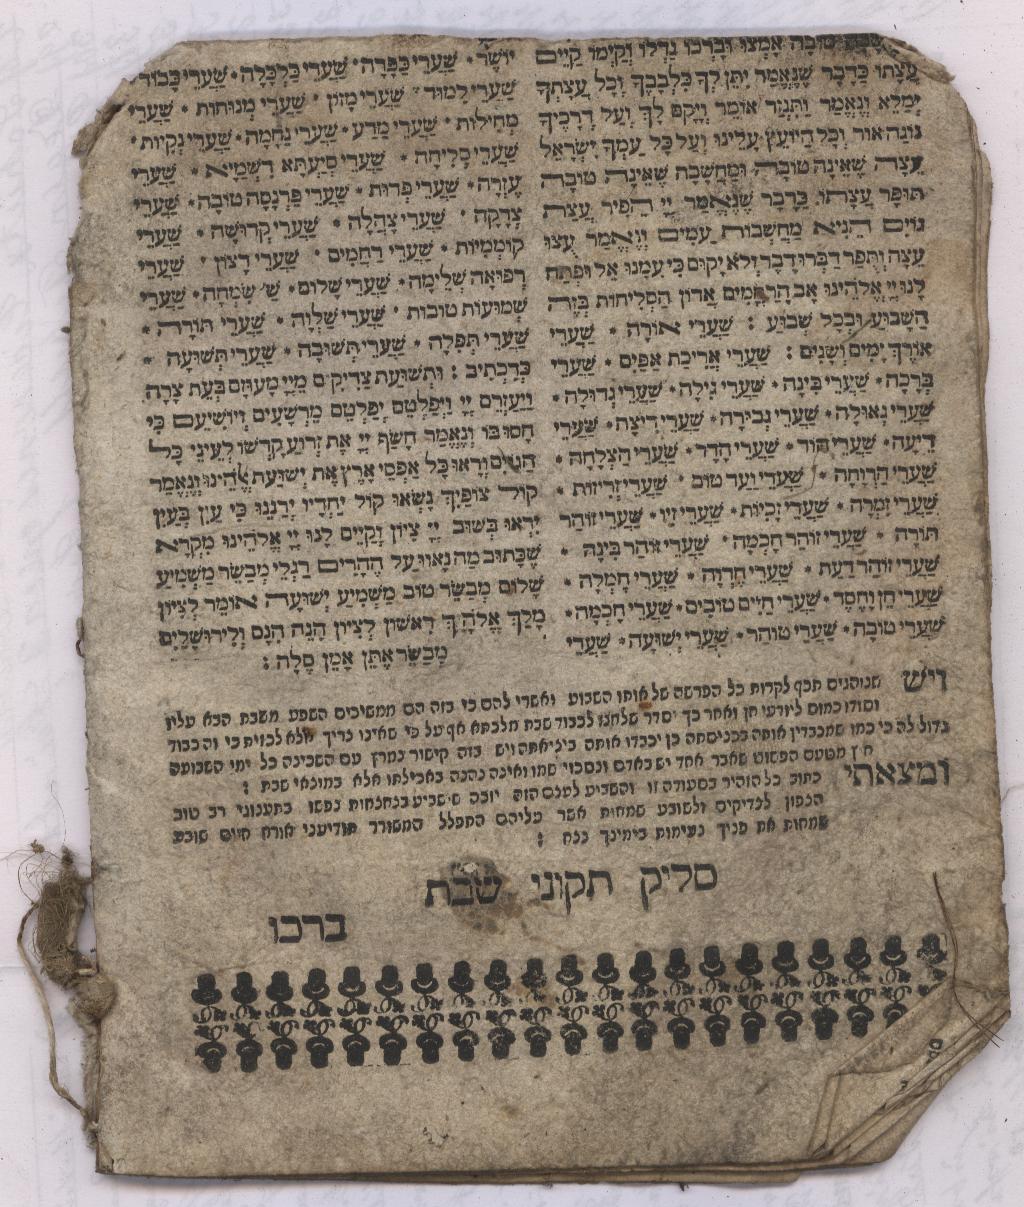 טובה אמצו וברכו גדלו וקימו קיים
עצתו כדבר שנאמר יתן לך כלבבך וכל עצתך
ימלא ונאמר ותגזר אומר ויקם לך ועל דרכיך
נגה אור וכל היועץ עלינו ועל כל עמך ישראל
עצה שאינה טובה ומחשבת שאינה טובה
תופר עצתו. כדבר שנאמר יי הפיר עצת
גוים הניא מחשבות עמים ונאמר עצו
עצה ותפר דברו דבר ולא יקום כי עמנו אל ופתח
לנו יי אלהינו אב הרחמים אדון הסליחות בזה
השבוע ובכל שבוע : שערי אורה * שערי
אורך ימים ושנים : שערי אריכת אפים * שערי
ברכה * שערי בינה * שערי גילה * שערי גדולה *
שערי גאולה * שערי גבורה * שערי דיצה * שערי
דיעה * שערי הוד * שערי הדר * שערי הצלחה *
שערי הרוחה * שערי ועד טוב * שערי זריזות *
שערי זמרה * שערי זכיות * שערי זיו * שערי זוהר
תורה * שערי זוהר חכמה * שערי זוהר בינה *
שערי זוהר דעת * שערי חדוה * שערי חמלה *
שערי חן וחסד * שערי חיים טובים * שערי חכמה *
שערי טובה * שערי טוהר * שערי ישועה * שערי
יושר * שערי כפרה * שערי כלכלה * שערי כבוד *
שערי למוד * שערי מזון * שערי מנוחות * שערי
מחילות * שערי מדע * שערי נחמה * שערי נקיות *
שערי סליחה * שערי סיעתא דשמיא * שערי
עזרה * שערי פדות * שערי פרנסה טובה * שערי
צדקה * שערי צהלה * שערי קדושה * שערי
קוממיות * שערי רחמים * שערי רצון * שערי
רפואה שלימה * שערי שלום * ש' שמחה * שערי
שמועות טובות * שערי שלוה * שערי תורה *
שערי תפלה * שערי תשובה * שערי תשועה *
כדכתיב : ותשועת צדיקים מיי מעוזם בעת צרה
ויעזרם יי ויפלטם יפלטם מרשעים ויושיעם כי
חסו בו ונאמר חשף יי את זרוע קדשו לעיני כל
הגוים וראו כל אפסי ארץ את ישועת אלהינו ונאמר
קול צופיך נשאו קול יחדיו ירננו כי עין בעין
יראו בשוב יי ציון וקיים לנו יי אלהינו מקרא
שכתוב מה נאוו על ההרים רגלי מבשר משמיע
שלום מבשר טוב משמיע ישועה אומר לציון
מלך אלהיך ראשון לציון הנה הנם ולירושלים
מבשר אתן אמן סלה :
ויש שנוהגים תכף לקרות כל הפרשה של אותו השבוע ואשרי להם כי בזה הם ממשיכים השפע משבת הבא עליו
וסודו כמוס ליודעי חן ואחר כך יסדר שלחנו לכבוד שבת מלכתא אף על פי שאינו צריך אלא לכזית כי זה כבוד
גדול לה כי כמו שמכבדין אותה בכניסתה כן יכבדו אותה ביציאתה ויש בזה קישור נמרץ עם השכינה כל ימי השבוע
ח"ץ מטעם הפשוט שאבר אחד יש באדם ונסכוי שמו ואינה נהנה באכילתו אלא במוצאי שבת :
ומצאתי כתוב כל הזהיר בסעודה זו והשביע לעצם הזה יזכה שישביע בצחצחות נפשו בתענוגי רב טוב
הצפון לצדיקים ולשובע שמחות אשר עליהם התפלל המשורר תודיעני אורח חיים שובע
שמחות את פניך נעימות בימינך נצח :
סליק תקוני שבת
ברכו